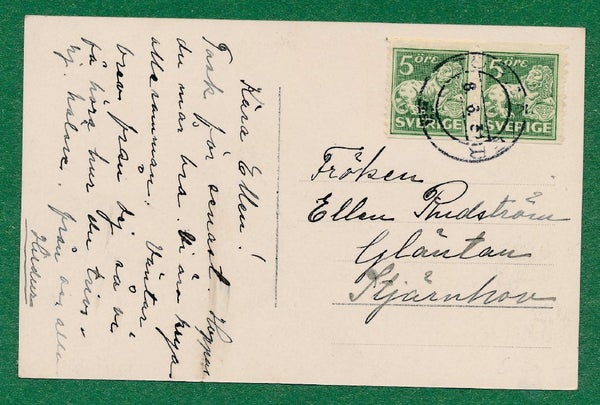 Kära Ellen!
Tack för senast. Hoppas
du mår bra. Vi äro krya
allesamman. Väntar
brev från dej så vi
få höra hur du trivs
Hj. häls. från oss alla
5 ÖRE
SVERIGE
5 ÖRE
SVERIGE
Fröken
Ellen Rudström
Gläntan
Stjärnhov